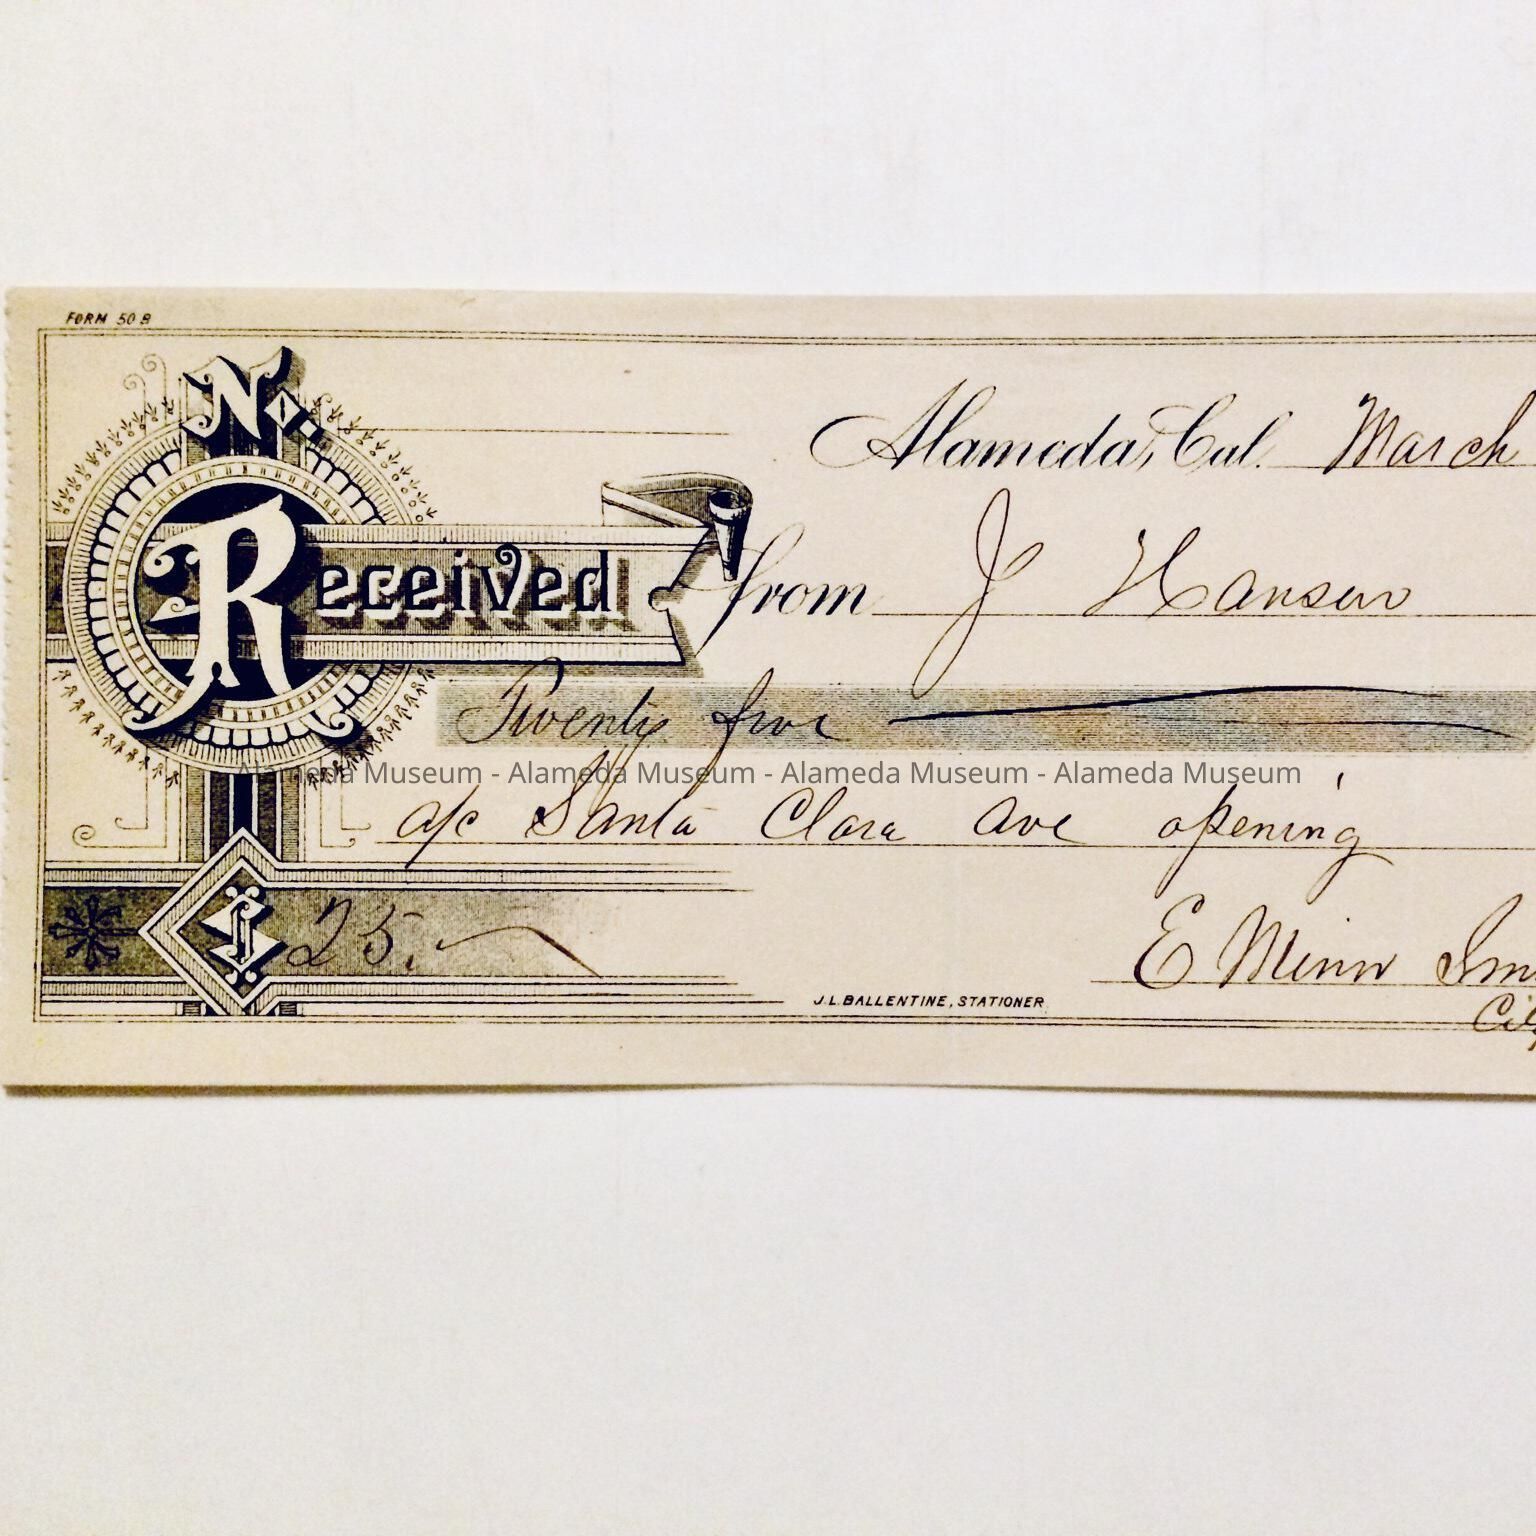 FORM 50 B
No.
Alameda, Cal. March
Received from J Hansen
Twenty five
Alameda Museum - Alameda Museum - Alameda Museum - Alameda Museum
a/c Santa Clara Ave opening
$ 25.
E Minn Sm
J.L. BALLENTINE, STATIONER